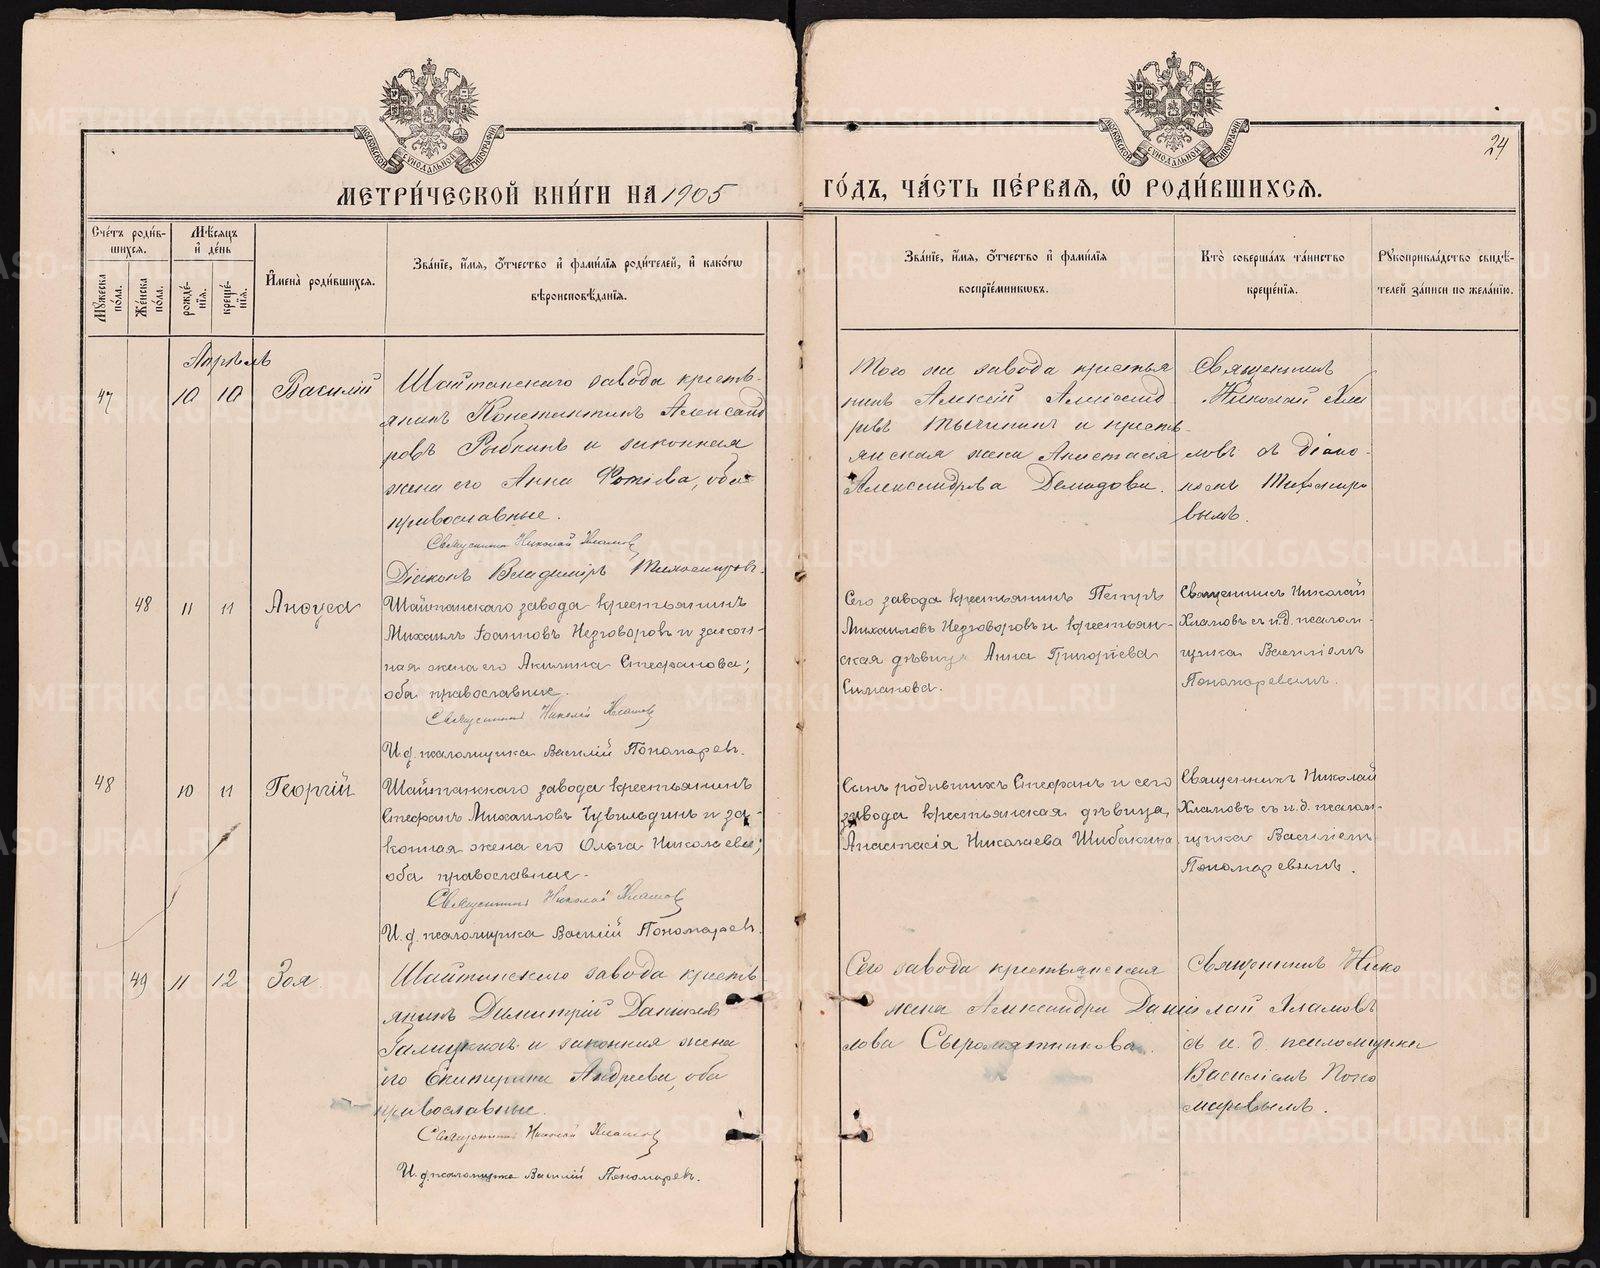 24
МЕТРИ́ЧЕСКОЙ КНИ́ГИ НА 1905 ГО́ДЪ, ЧА́СТЬ ПЕ́РВАЯ, Ѡ РОДИ́ВШИХСЯ.
МОСКОВСКОЙ СѴНОДАЛЬНОЙ ТИПОГРАФІИ
МОСКОВСКОЙ СѴНОДАЛЬНОЙ ТИПОГРАФІИ
Сче́тъ роди́в-
шихся.
Мѣ́сяцъ
и҆ де́нь
Мꙋ́жеска
по́ла.
Же́нска
по́ла.
рожде́-
нїя.
креще́-
нїя.
И҆мена̀ роди́вшихся.
Зва́нїе, и҆́мя, ѻ҆́тчество и҆ фами́лїя роди́телей, и҆ како́гѡ
вѣроисповѣ́данїя.
Зва́нїе, и҆́мя, ѻ҆́тчество и҆ фами́лїя
воспрїе́мниковъ.
Кто̀ соверша́лъ та́инство
креще́нїя.
Рꙋкоприкла́дство свидѣ́-
телей за́писи по жела́нїю.
Апрѣль
47
10 10
Василій
Шайтанскаго завода кресть-
янинъ Константинъ Александ
ровъ Рыбкинъ и законная
жена его Анна Фотіева, оба
православные.
Священникъ Николай Хламовъ
Діаконъ Владиміръ Тихомировъ.
Того же завода крестья
нинъ Алексій Александ
ровъ Тычининъ и кресть-
янская жена Анастасія
Александрова Демидова.
Священникъ
Николай Хла
мовъ съ діако-
номъ Тихомиро
вымъ.
48
11 11
Анфуса
Шайтанскаго завода крестьянинъ
Михаилъ Іоанновъ Незговоровъ и закон-
ная жена его Акилина Стефанова;
оба православные.
Священникъ Николай Хламовъ
И. д. псаломщика Василій Пономаревъ.
Сего завода крестьянинъ Петръ
Михаиловъ Незговоровъ и крестьян-
ская дѣвица Анна Григоріева
Симанова.
Священникъ Николай
Хламовъ съ и. д. псалом-
щика Василіемъ
Пономаревымъ.
48
10 11
Георгій
Шайтанскаго завода крестьянинъ
Стефанъ Михаиловъ Чувильдинъ и за-
конная жена его Ольга Николаева;
оба православные.
Священникъ Николай Хламовъ
И. д. псаломщика Василій Пономаревъ.
Сынъ родившихъ Стефанъ и сего
завода крестьянская дѣвица
Анастасія Николаева Шибакина
Священникъ Николай
Хламовъ съ и. д. псалом-
щика Василіемъ
Пономаревымъ.
49
11 12
Зоя
Шайтанскаго завода кресть
янинъ Димитрій Даніиловъ
Галицкихъ и законная жена
его Екатерина Андреева, оба
православные.
Священникъ Николай Хламовъ
И. д. псаломщика Василій Пономаревъ.
Сего завода крестьянская
жена Александра Даніи
лова Сыромятникова.
Священникъ Нико
лай Хламовъ
съ и. д. псаломщика
Василіемъ Поно
маревымъ.
METRIKI.GASO-URAL.RU